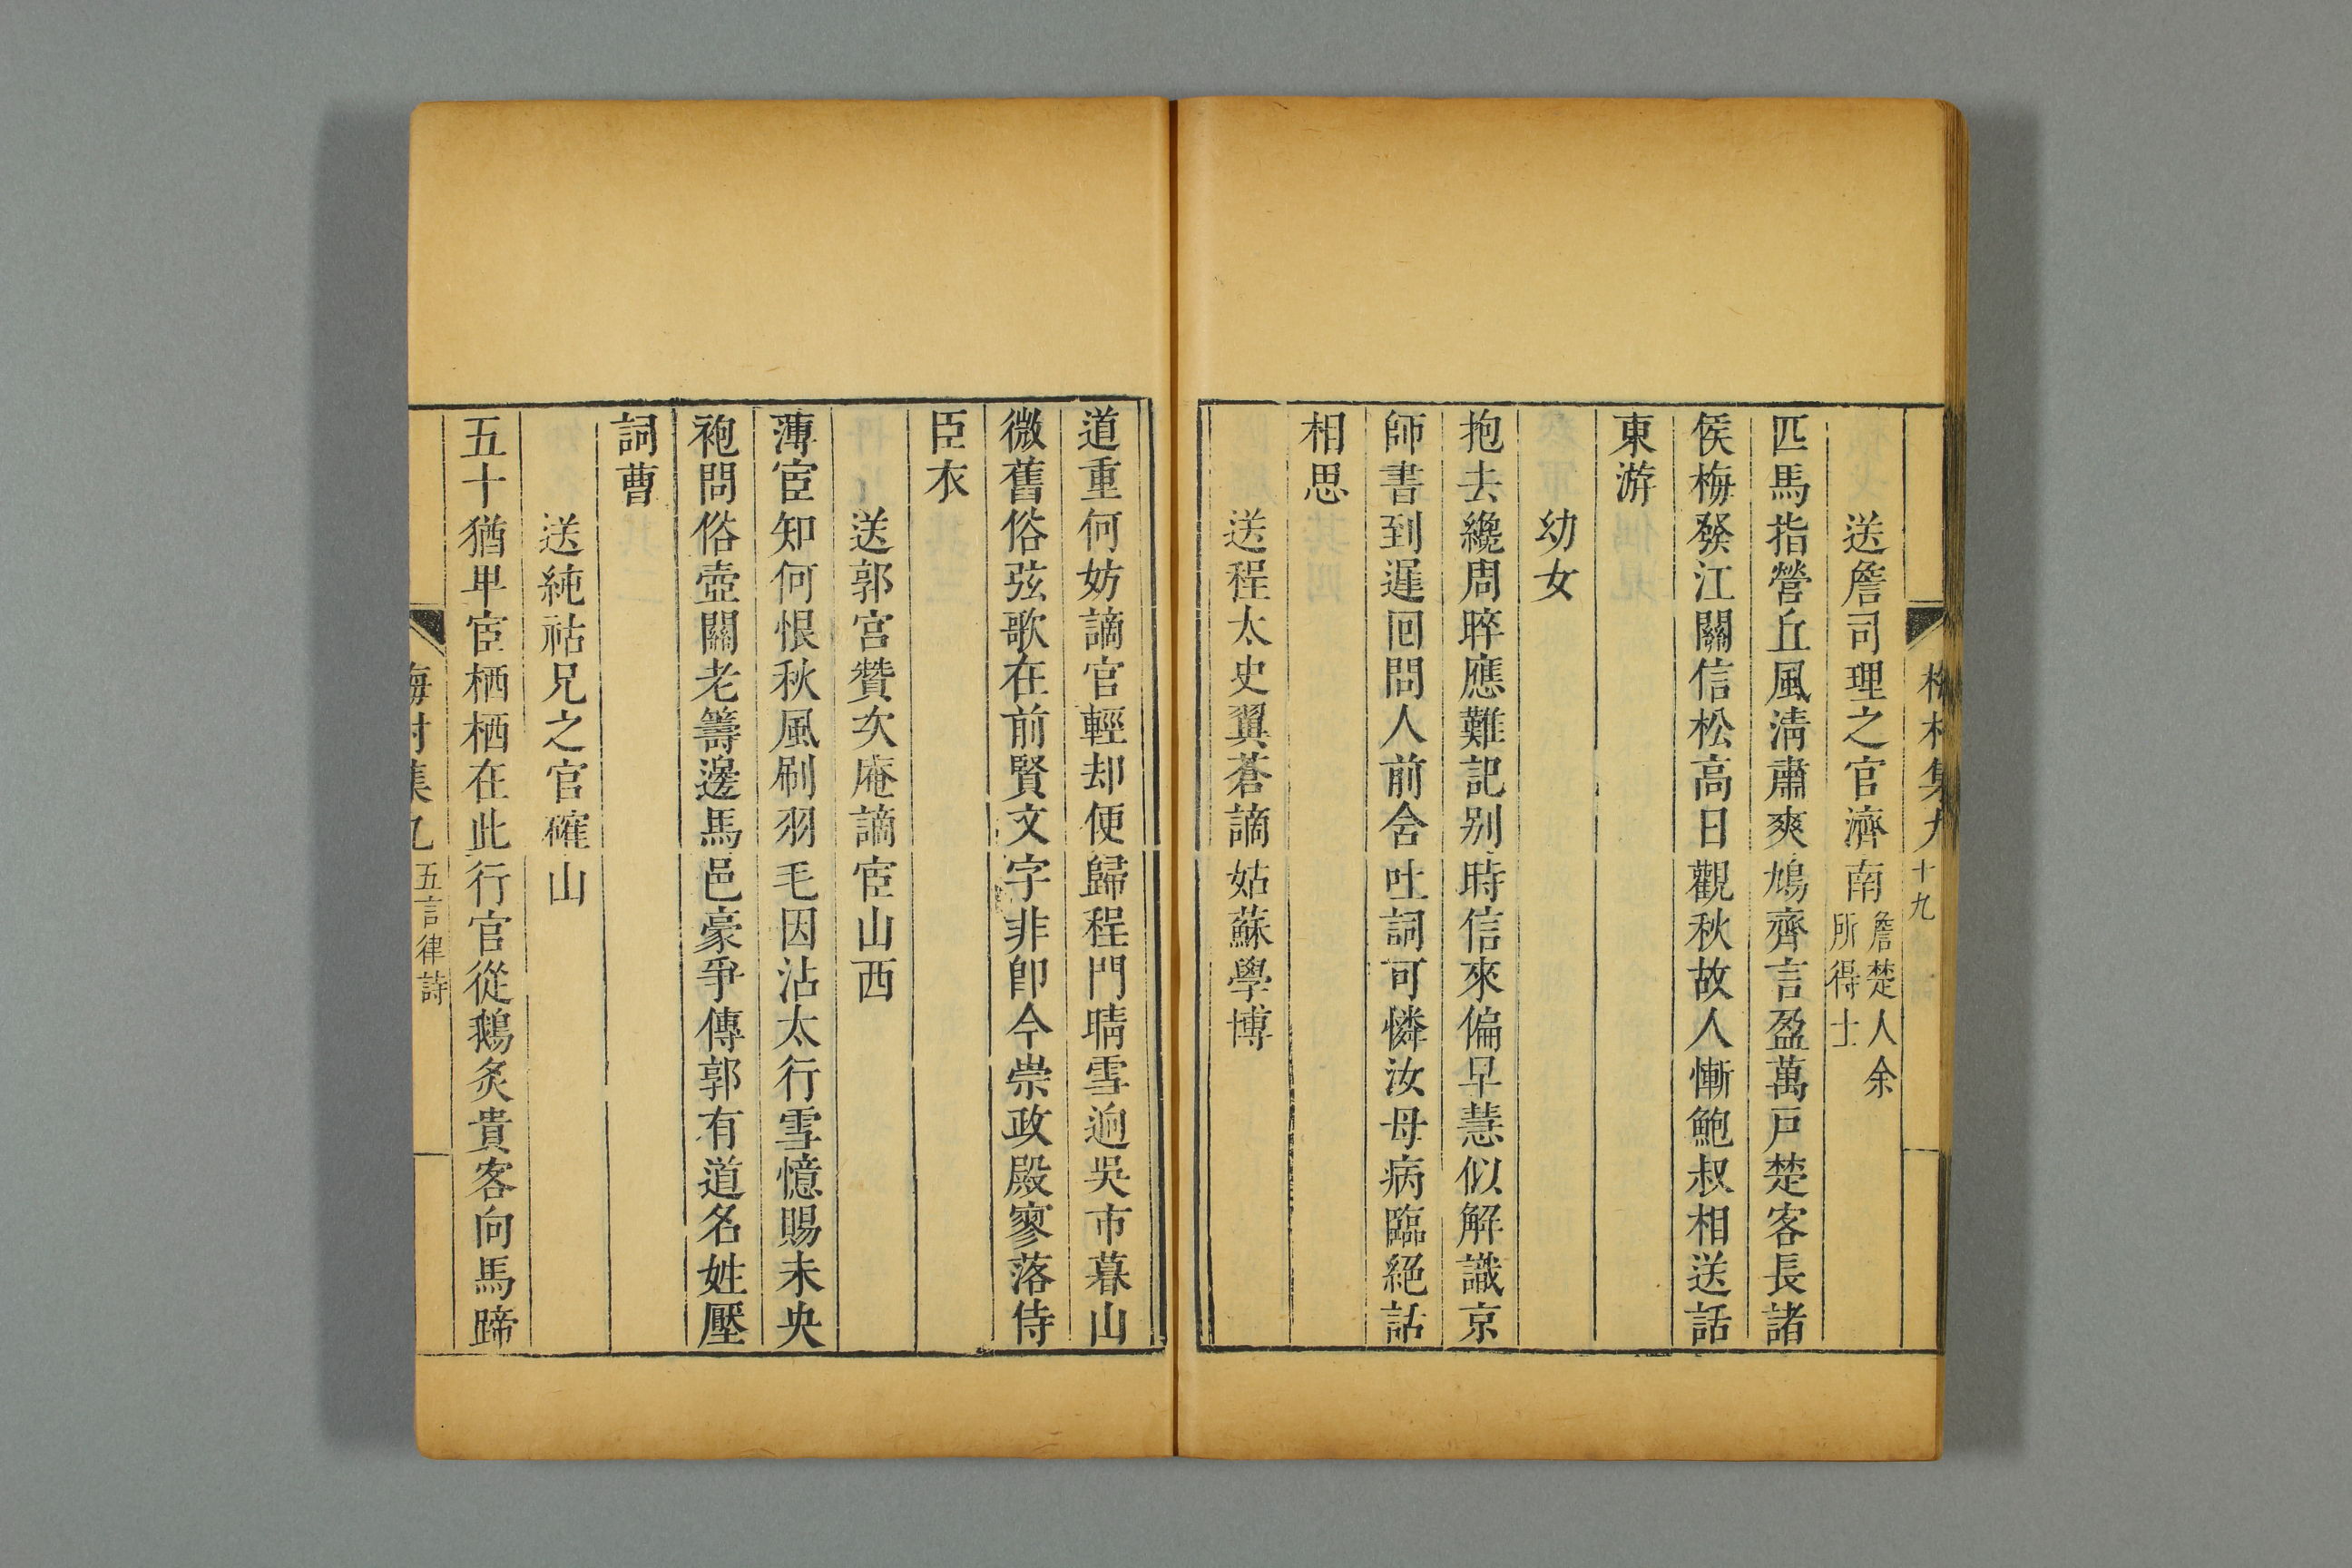 梅村集九 十九
送詹司理之官濟南 詹楚人余所得士
匹馬指營丘風清肅爽鳩齊言盈萬戸楚客長諸
侯梅發江關信松高日觀秋故人慚鮑叔相送話
東游
幼女
抱去纔周晬應難記别時信來偏早慧似解識京
師書到遲回問人前含吐詞可憐汝母病臨絕話
相思
送程太史翼蒼謫姑蘇學博
道重何妨謫官輕却便歸程門晴雪迥吳市暮山
微舊俗弦歌在前賢文字非即今崇政殿寥落侍
臣衣
送郭宮贊次庵謫宦山西
薄宦知何恨秋風刷羽毛因沾太行雪憶賜未央
袍問俗壺關老籌邊馬邑豪爭傳郭有道名姓壓
詞曹
送純祜兄之官確山
五十猶卑宦栖栖在此行官從鵝炙貴客向馬蹄
五言律詩